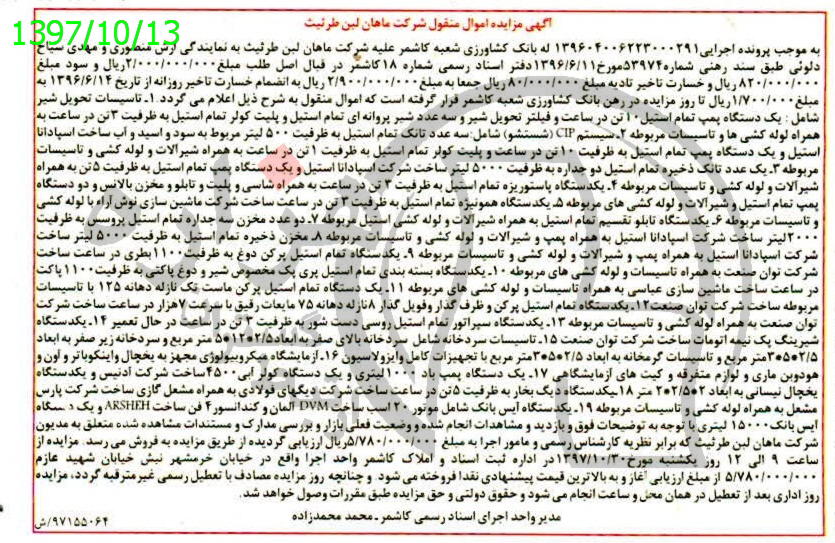 1397/10/13
آگهی مزایده اموال منقول شرکت ماهان لبن طرثیث
به موجب پرونده اجرایی ۱۳۹۶۰۴۰۰۶۲۲۳۰۰۰۲۹۱ له بانک کشاورزی شعبه کاشمر علیه شرکت ماهان لبن طرثیث به نمایندگی آرش منصوری و مهدی سیاح
دلوئی طبق سند رهنی شماره ۵۳۹۷۴مورخ۱۳۹۶/۶/۱۱دفتر اسناد رسمی شماره ۱۸کاشمر در قبال اصل طلب مبلغ۲/۰۰۰/۰۰۰/۰۰۰ریال و سود مبلغ
۸۲۰/۰۰۰/۰۰۰ ریال و خسارت تاخیر تادیه مبلغ ۸۰/۰۰۰/۰۰۰ریال جمعا به مبلغ۲/۹۰۰/۰۰۰/۰۰۰ریال به انضمام خسارت تاخیر روزانه از تاریخ ۱۳۹۶/۶/۱۴ به
مبلغ۱/۷۰۰/۰۰۰ریال تا روز مزایده در رهن بانک کشاورزی شعبه کاشمر قرار گرفته است که اموال منقول به شرح ذیل اعلام می گردد .۱ـ تاسیسات تحویل شیر
شامل: یک دستگاه پمپ تمام استیل۱۰ تن در ساعت و فیلتر تحویل شیر و سه عدد شیر پروانه ای تمام استیل و پلیت کولر تمام استیل به ظرفیت ۳تن در ساعت به
همراه لوله کشی ها و تاسیسات مربوطه ۲ـ سیستم CIP (شستشو) شامل:سه عدد تانک تمام استیل به ظرفیت ۵۰۰ لیتر مربوط به سود و اسید و آب ساخت اسپادانا
استیل و یک دستگاه پمپ تمام استیل به ظرفیت ۱۰تن در ساعت و پلیت کولر تمام استیل به ظرفیت ۱تن در ساعت به همراه شیرآلات و لوله کشی و تاسیسات
مربوطه ۳ـ یک عدد تانک ذخیره تمام استیل دو جداره به ظرفیت ۵۰۰۰ لیتر ساخت شرکت اسپادانا استیل و یک دستگاه پمپ تمام استیل به ظرفیت ۵تن به همراه
شیرآلات و لوله کشی و تاسیسات مربوطه ۴ـ یکدستگاه پاستوریزه تمام استیل به ظرفیت ۳ تن در ساعت به همراه شاسی و پلیت و تابلو و مخزن بالانس و دو دستگاه
پمپ تمام استیل و شیرآلات و لوله کشی های مربوطه ۵ـ یکدستگاه هموژنیزه تمام استیل به ظرفیت ۳ تن در ساعت ساخت شرکت ماشین سازی نوش آراء با لوله کشی
و تاسیسات مربوطه ۶ـ یکدستگاه تابلو تقسیم تمام استیل به همراه شیرآلات و لوله کشی استیل مربوطه ۷ـ دو عدد مخزن سه جداره تمام استیل پروسس به ظرفیت
۲۰۰۰لیتر ساخت شرکت اسپادانا استیل به همراه پمپ و شیرآلات و لوله کشی و تاسیسات مربوطه ۸ـ مخزن ذخیره تمام استیل به ظرفیت ۵۰۰۰ لیتر ساخت
شرکت اسپادانا استیل به همراه پمپ و شیرآلات و لوله کشی و تاسیسات مربوطه ۹ـ یکدستگاه تمام استیل پرکن دوغ به ظرفیت۱۱۰۰بطری در ساعت ساخت
شرکت توان صنعت به همراه تاسیسات و لوله کشی های مربوطه ۱۰ـ یکدستگاه بسته بندی تمام استیل پری پک مخصوص شیر و دوغ پاکتی به ظرفیت۱۱۰۰پاکت
در ساعت ساخت ماشین سازی عباسی به همراه تاسیسات و لوله کشی های مربوطه ۱۱ـ یک دستگاه تمام استیل پرکن ماست تک نازله دهانه ۱۲۵ با تاسیسات
مربوطه ساخت شرکت توان صنعت۱۲ـ یکدستگاه تمام استیل پرکن و ظرف گذار وفویل گذار ۸نازله دهانه ۷۵ مایعات رقیق با سرعت ۷هزار در ساعت ساخت شرکت
توان صنعت به همراه لوله کشی و تاسیسات مربوطه ۱۳ـ یکدستگاه سپراتور تمام استیل روسی دست شور به ظرفیت ۲ تن در ساعت در حال تعمیر ۱۴ـ یکدستگاه
شیرینگ پک نیمه اتومات ساخت شرکت توان صنعت ۱۵ـ تاسیسات سردخانه شامل سردخانه بالای صفر به ابعاد۲/۵*۱۲*۵ متر مربع و سردخانه زیر صفر به ابعاد
۲/۵*۵*۳متر مربع و تاسیسات گرمخانه به ابعاد ۲/۵*۵*۳متر مربع با تجهیزات کامل وایزولاسیون ۱۶ـ آزمایشگاه میکروبیولوژی مجهز به یخچال واینکوباتر و آون و
هودوبن ماری و لوازم متفرقه و کیت های آزمایشگاهی ۱۷ـ یک دستگاه پمپ باد ۱۰۰۰لیتری و یک دستگاه کولر آبی۴۵۰۰ساخت شرکت آدنیس و یکدستگاه
یخچال نیسانی به ابعاد ۲*۲/۵*۲ متر ۱۸ـیکدستگاه دیگ بخار به ظرفیت ۵تن در ساعت ساخت شرکت دیگهای فولادی به همراه مشعل گازی ساخت شرکت پارس
مشعل به همراه لوله کشی و تاسیسات مربوطه ۱۹ـ یکدستگاه آیس بانک شامل موتور ۲۰ اسب ساخت DVM آلمان و کندانسور۴ فن ساخت ARSHEH و یک دستگاه
آیس بانک۱۵۰۰۰ لیتری با توجه به توضیحات فوق و بازدید و مشاهدات انجام شده و وضعیت فعلی بازار و بررسی مدارک و مستندات مشاهده شده متعلق به مدیون
شرکت ماهان لبن طرثیث که برابر نظریه کارشناس رسمی و مامور اجرا به مبلغ ۵/۷۸۰/۰۰۰/۰۰۰ریال ارزیابی گردیده از طریق مزایده به فروش می رسد. مزایده از
ساعت ۹ الی ۱۲ روز یکشنبه مورخ۱۳۹۷/۱۰/۳۰در اداره ثبت اسناد و املاک کاشمر واحد اجرا واقع در خیابان خرمشهر نبش خیابان شهید عازم
۵/۷۸۰/۰۰۰/۰۰۰ از مبلغ ارزیابی آغاز و به بالاترین قیمت پیشنهادی نقدا فروخته می شود. و چنانچه روز مزایده مصادف با تعطیل رسمی غیرمترقبه گردد، مزایده
روز اداری بعد از تعطیل در همان محل و ساعت انجام می شود و حقوق دولتی و حق مزایده طبق مقررات وصول خواهد شد.
مدیر واحد اجرای اسناد رسمی کاشمر ـ محمد محمدزاده
۹۷۱۵۵۰۶۴/ش